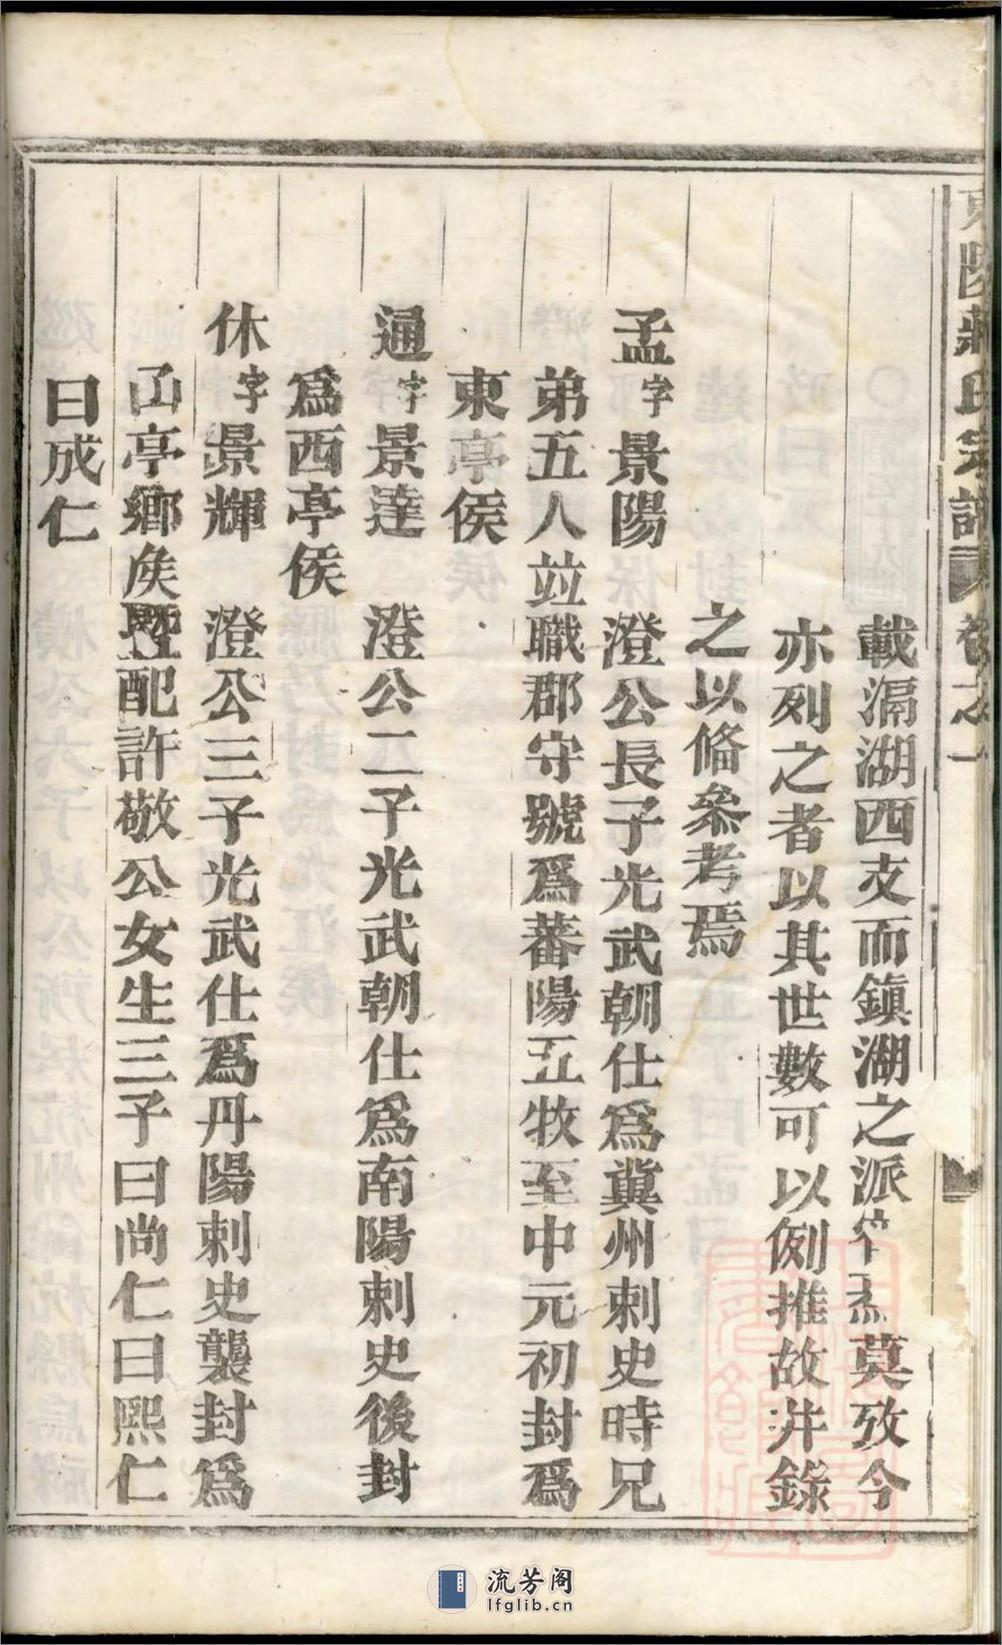 東陽蔣氏宗譜 卷之一
載滆湖西支而鎮湖之派莫攷今
亦列之者以其世數可以例推故并錄
之以俻叅考焉
孟字景陽 澄公長子光武朝仕爲兾州刺史時兄
弟五人竝職郡守號爲蕃陽五牧至中元初封爲
東亭侯
通字景達 澄公二子光武朝仕爲南陽刺史後封
爲西亭侯
休字景輝 澄公三子光武仕爲丹陽刺史襲封爲
亭鄉矦配許敬公女生三子曰尚仁曰熙仁
曰成仁
流芳阁
lfglib.cn